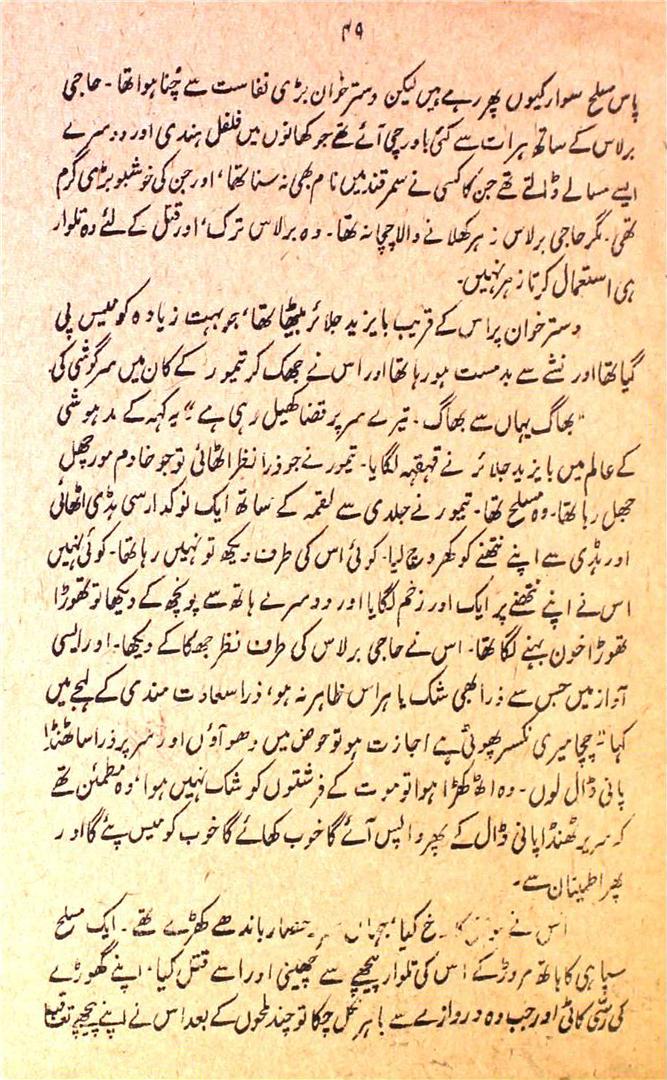 ۴۹
پاس مسلح سوار کیوں پھر رہے ہیں لیکن دسترخوان بڑی نفاست سے چُنا ہوا تھا۔ حاجی
برلاس کے ساتھ ہرات سے کئی باورچی آئے تھے جو کھانوں میں فلفل ہندی اور دوسرے
ایسے مسالے ڈالتے تھے جن کا کسی نے سمرقند میں نام بھی نہ سنا تھا، اور جن کی خوشبو بڑی گرم
تھی۔ مگر حاجی برلاس زہر کھلانے والا چچا نہ تھا۔ وہ برلاس ترک، اور قتل کے لئے وہ تلوار
ہی استعمال کرتا زہر نہیں۔
دسترخوان پر اس کے قریب بایزید جلائر بیٹھا تھا، جو بہت زیادہ کومیس پی
گیا تھا اور نشے سے بدمست ہو رہا تھا اور اس نے جھک کر تیمور کے کان میں سرگوشی کی۔
"بھاگ یہاں سے بھاگ۔ تیرے سر پر قضا کھیل رہی ہے"۔ یہ کہہ کے مدہوشی
کے عالم میں بایزید جلائر نے قہقہہ لگایا۔ تیمور نے جو ذرا نظر اٹھائی تو جو خادم مورچھل
جھل رہا تھا۔ وہ مسلح تھا۔ تیمور نے جلدی سے لقمہ کے ساتھ ایک نوکدار سی ہڈی اٹھائی
اور ہڈی سے اپنے نتھنے کو کھروچ لیا۔ کوئی اس کی طرف دیکھ تو نہیں رہا تھا۔ کوئی نہیں
اس نے اپنے نتھنے پر ایک اور زخم لگایا اور دوسرے ہاتھ سے پونچھ کے دیکھا تو تھوڑا
تھوڑا خون بہنے لگا تھا۔ اس نے حاجی برلاس کی طرف نظر جھکا کے دیکھا۔ اور ایسی
آواز میں جس سے ذرا بھی شک یا ہراس ظاہر نہ ہو، ذرا سعادت مندی کے لہجے میں
کہا "چچا میری نکسیر پھوٹی ہے اجازت ہو تو حوض میں دھو آؤں اور سر پر ذرا سا ٹھنڈا
پانی ڈال لوں۔ وہ اٹھ کھڑا ہوا تو موت کے فرشتوں کو شک نہیں ہوا، وہ مطمئن تھے
کہ سر پر ٹھنڈا پانی ڈال کے پھر واپس آئے گا خوب کھائے گا خوب کومیس پئے گا اور
پھر اطمینان سے۔
اس نے کا رخ کیا، جہاں باندھے کھڑے تھے۔ ایک مسلح
سپاہی کا ہاتھ مروڑ کے اس کی تلوار پیچھے سے چھینی اور اسے قتل کیا، اپنے گھوڑے
کی رسّی کاٹی اور جب وہ دروازے سے باہر نکل چکا تو چند لمحوں کے بعد اس نے اپنے پیچھے